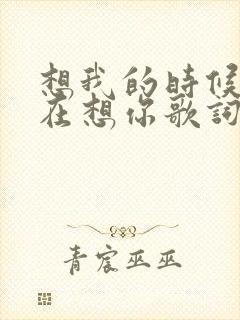 想我的时候
在想你歌词
青宸巫巫